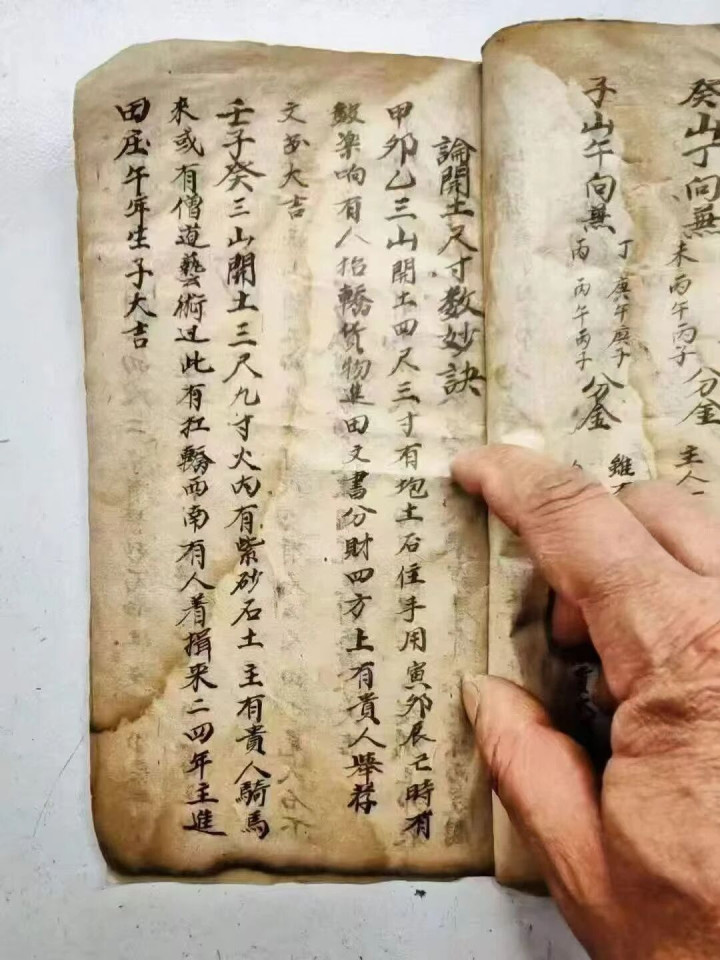 癸山丁向無
未丙午丙子
分金
主人
子山午向無
丁庚午庚子
丙丙午丙子
分金
雖
論開土尺寸数妙訣
甲卯乙三山開土四尺三寸有坭土石住手用寅卯辰巳時有
皷楽响有人抬轎货物進田文書分財四方上有貴人舉荐
文書大吉
壬子癸三山開土三尺九寸火内有紫砂石土主有貴人騎馬
來或有僧道藝術过此有扛轎西南有人着揖來二四年主進
田庄午年生子大吉